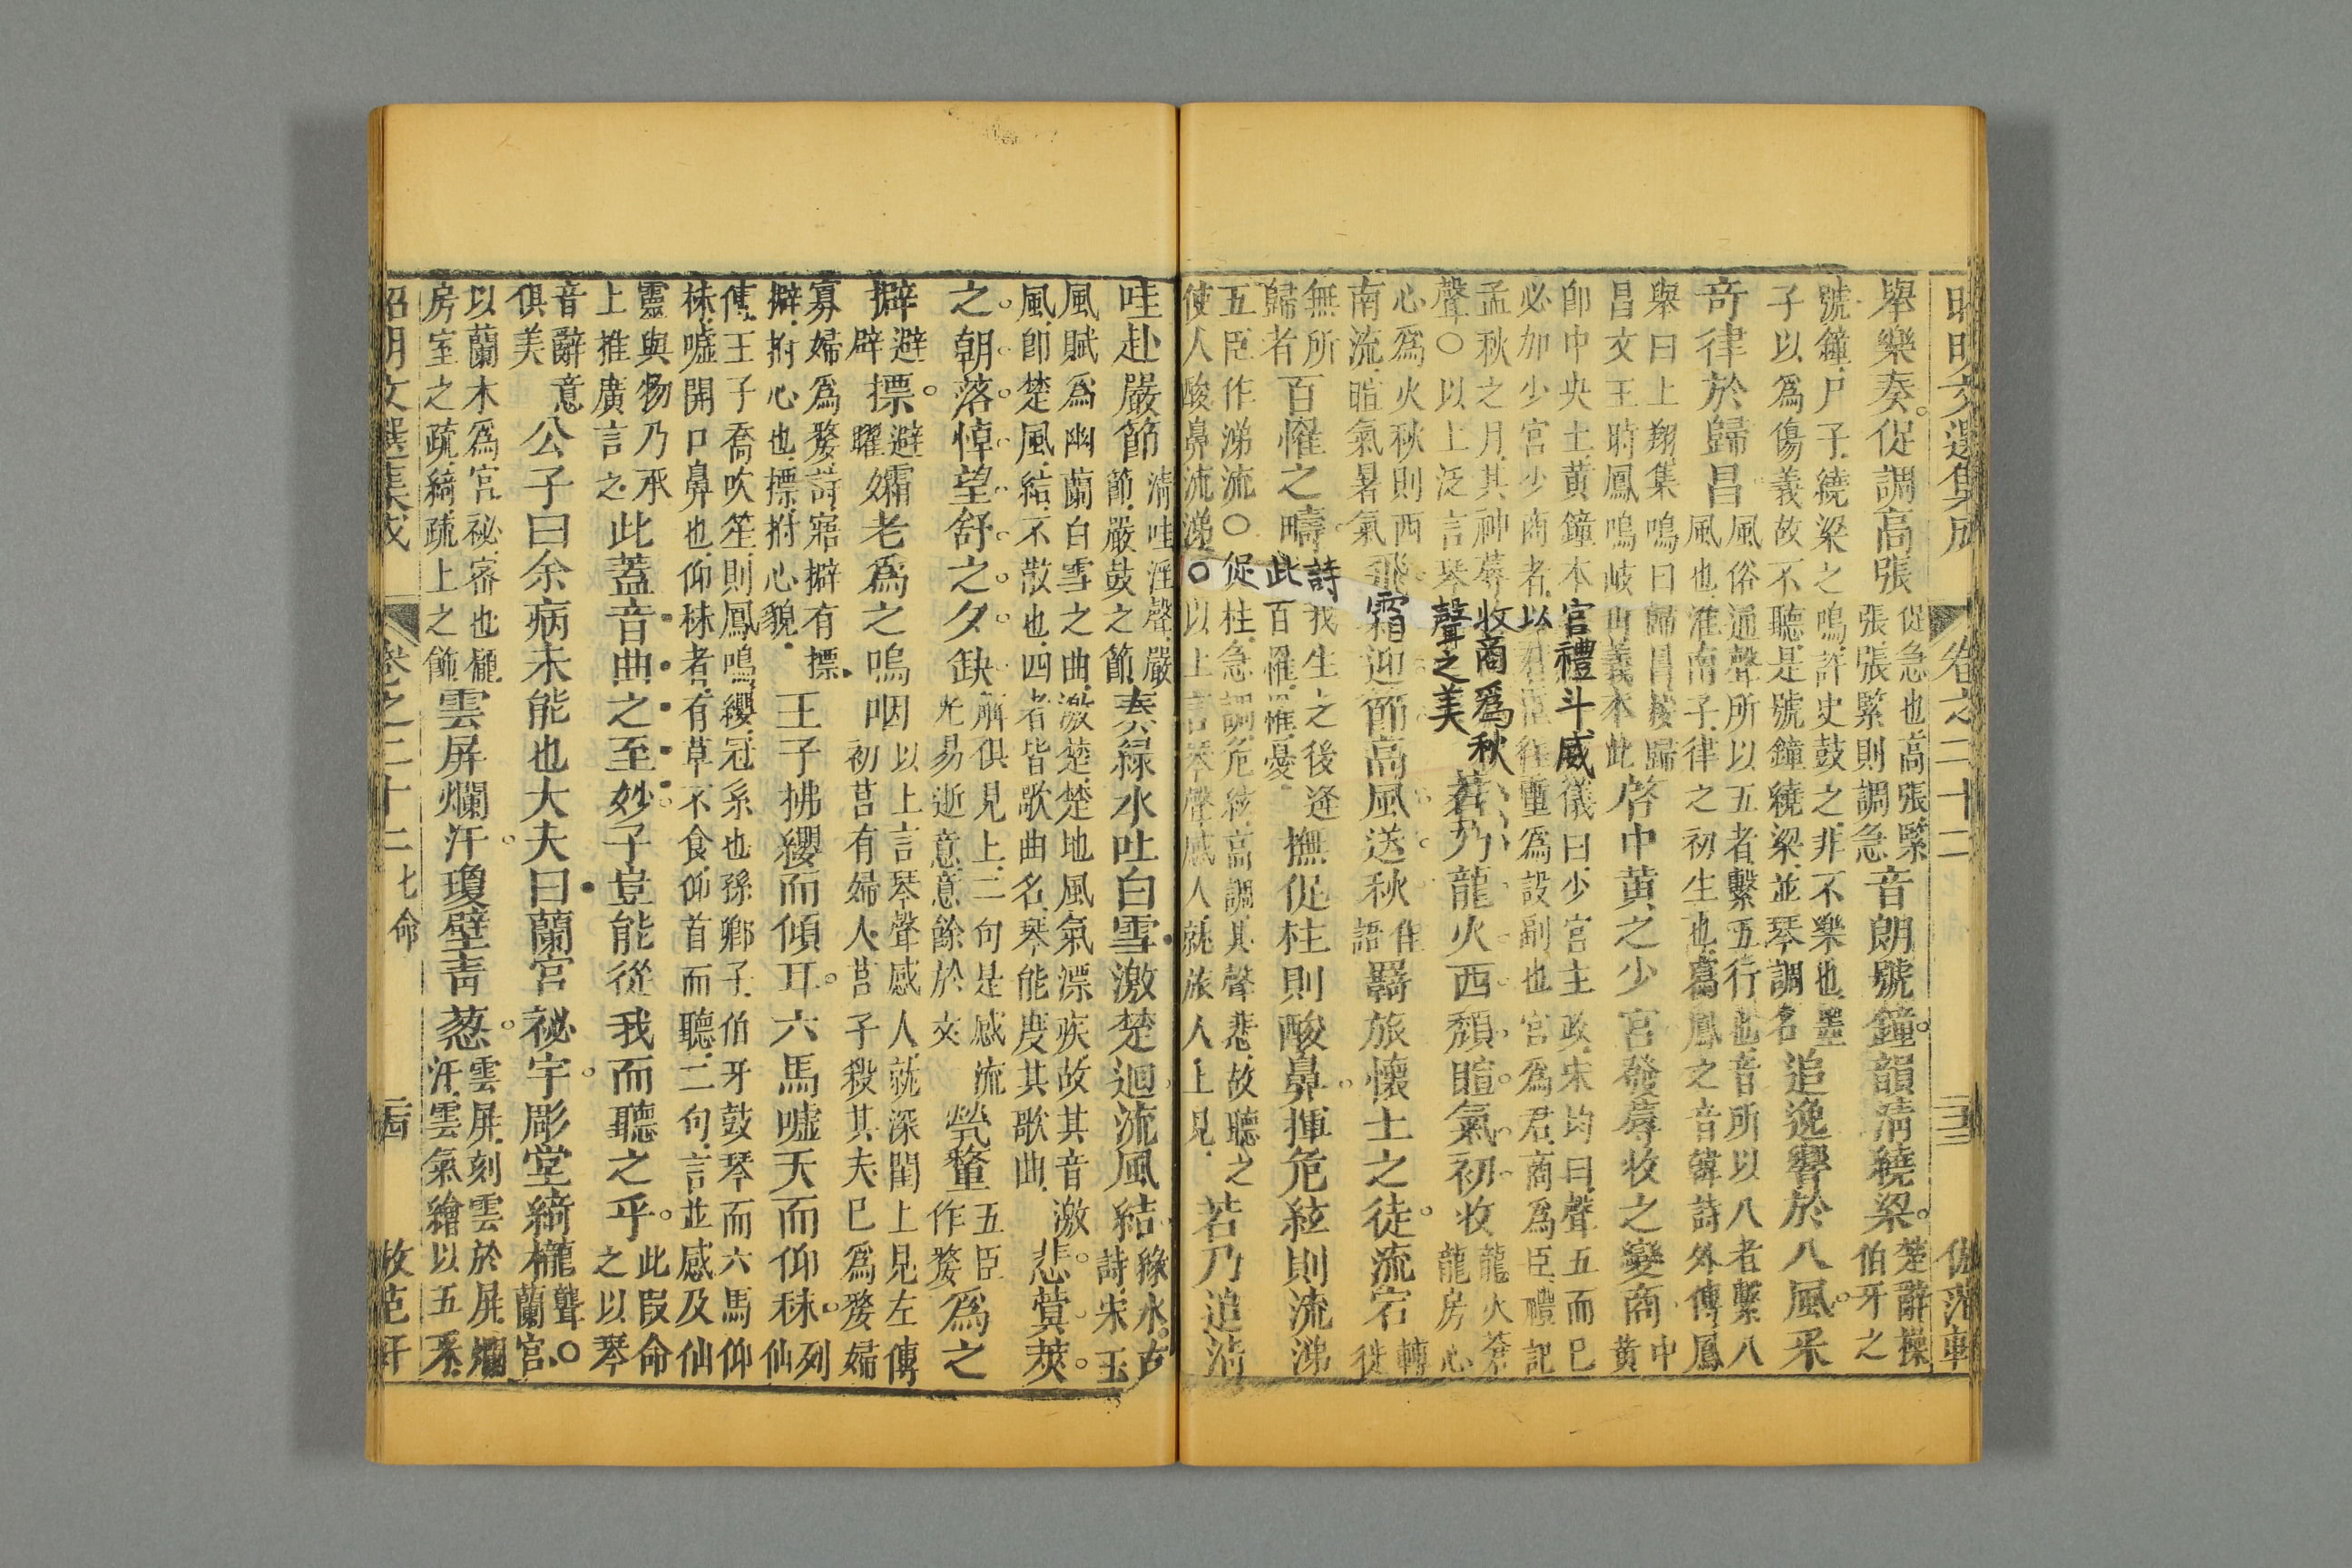 昭明文選集成 卷之二十二
舉樂奏促調高張 促急也高張緊張張緊則調急 音朗號鐘韻清繞梁 楚辭操伯牙之
號鐘尸子繞梁之鳴許史鼓之非不樂也墨子以為傷義故不聽是號鐘繞梁並琴調名 追逸響於八風采
奇律於歸昌 風俗通聲所以五者繫五行也音所以八者繫八風也淮南子律之初生也寫鳳之音韓詩外傳鳳
舉曰上翔集鳴曰歸昌按歸昌文王時鳳鳴岐山義本此 啓中黃之少宮發蓐收之變商 中黃
即中央土黃鐘本宮禮斗威儀曰少宮主政宋均曰聲五而已必加少宮少商者以君臣任重為設副也宮為君商為臣禮記
孟秋之月其神蓐收商為秋聲〇以上泛言琴聲之美 若乃龍火西頹暄氣初收 龍火蒼龍房心
心為火秋則西南流暄氣暑氣 飛霜迎節高風送秋 佳語 羇旅懷土之徒流宕 轉徙
無所歸者 百罹之疇 詩我生之後逢此百罹罹憂 撫促柱則酸鼻揮危絃則流涕
五臣作涕流〇促柱急調危絃高調其聲悲故聽之使人酸鼻流涕〇以上言琴聲感人就旅人上見 若乃追清
哇赴嚴節 清哇淫聲嚴節嚴鼓之節 奏綠水吐白雪激楚迴流風結 綠水古詩宋玉
風賦為幽蘭白雪之曲激楚楚地風氣漂疾故其音激風即楚風結不散也四者皆歌曲名琴能度其歌曲 悲蓂莢
之朝落悼望舒之夕缺 解俱見上二句是感流光易逝意意餘於文 煢嫠 五臣作嫠 為之
擗 避辟 摽 避曜 孀老為之嗚咽 以上言琴聲感人就深閨上見左傳初莒有婦人莒子殺其夫已為嫠婦
寡婦為嫠詩寤擗有摽擗拊心也摽拊心貌 王子拂纓而傾耳六馬噓天而仰秣 列仙
傳王子喬吹笙則鳳鳴纓冠系也孫卿子伯牙鼓琴而六馬仰秣噓開口鼻也仰秣者有草不食仰首而聽二句言並感及仙
靈與物乃承上推廣言之 此蓋音曲之至妙子豈能從我而聽之乎 此叚命之以琴
音辭意俱美 公子曰余病未能也大夫曰蘭宮祕宇彫堂綺櫳 聾〇蘭宮
以蘭木為宮祕密也櫳房室之疏綺疏上之飾 雲屏爛汗瓊璧青葱 雲屏刻雲於屏爛汗雲氣繪以五采
昭明文選集成 卷之二十二 七命